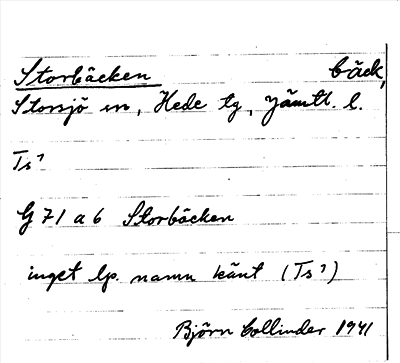 Storbäcken bäck,
Storsjö sn, Hede tg, Jämtl. l.
Ts?
G 71 a 6 Storbäcken
inget lp. namn känt (Ts?)
Björn Collinder 1941